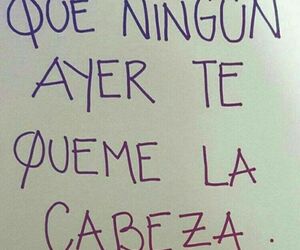 QUE NINGÚN
AYER TE
QUEME LA
CABEZA.